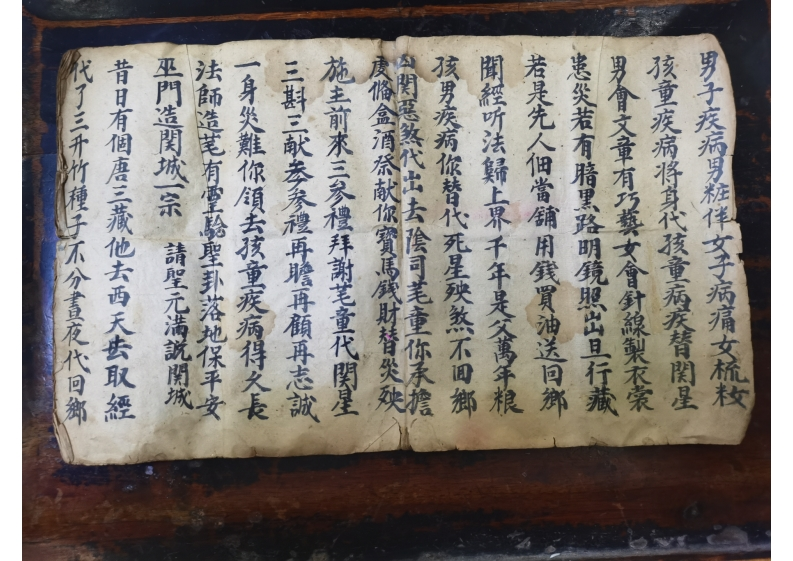 男子疾病男粧伴女子病痛女梳粧
孩童疾病将身代孩童病疾替関星
男會文章有巧藝女會針線製衣裳
患災若有暗黑路明鏡照出旦行藏
若是先人佃當舖用錢買油送回鄉
聞經听法歸上界千年是父萬年粮
孩男疾病你替代死星殃煞不回鄉
凶関惡煞代出去陰司茅童你承擔
虔俻盒酒祭献你寳馬錢財替災殃
施主前來三參禮拜謝茅童代関星
三斟三献叅叅禮再瞻再顧再志誠
一身災難你領去孩童疾病得久長
法師造茅有靈驗聖卦落地保平安
巫門造関城一宗 請聖元満説関城
昔日有個唐三藏他去西天去取經
代了三升竹種子不分晝夜代回鄉